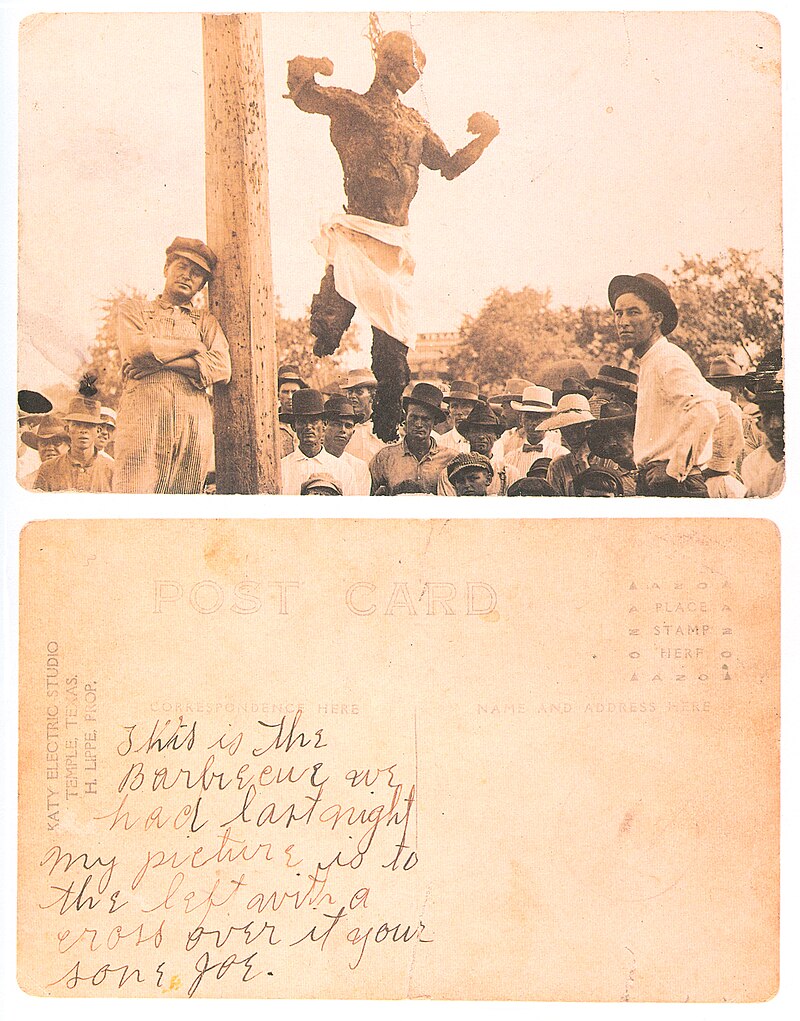 POST CARD
AZO
PLACE
STAMP
HERE
AZO
CORRESPONDENCE HERE
NAME AND ADDRESS HERE
KATY ELECTRIC STUDIO
TEMPLE, TEXAS.
H. LIPPE, PROP.
This is the
Barbecue we
had last night
My picture is to
the left with a
cross over it your
sone, JOE.